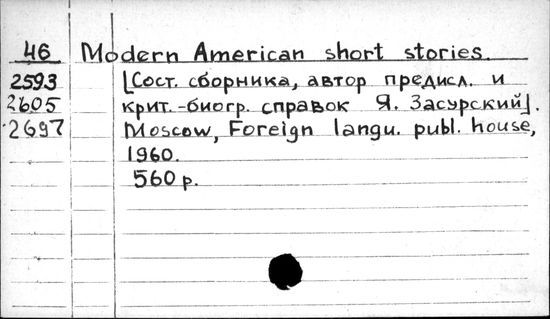 46 Modern American short stories.
2593 [Сост. сборника, автор предисл. и
2605 крит.-биогр. справок Я. Засурский].
2697 Moscow, Foreign langu. publ. house,
1960.
560 p.